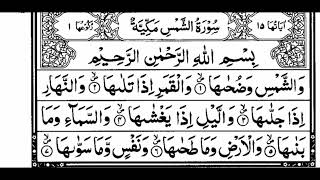 اٰيَاتُهَا ١٥ سُوْرَةُ الشَّمْسِ مَكِّيَّةٌ رُكُوْعُهَا ١
بِسْمِ اللّٰهِ الرَّحْمٰنِ الرَّحِيْمِ
وَالشَّمْسِ وَضُحٰىهَا ۝١ وَالْقَمَرِ اِذَا تَلٰىهَا ۝٢ وَالنَّهَارِ
اِذَا جَلّٰىهَا ۝٣ وَالَّيْلِ اِذَا يَغْشٰىهَا ۝٤ وَالسَّمَآءِ وَمَا
بَنٰىهَا ۝٥ وَالْاَرْضِ وَمَا طَحٰىهَا ۝٦ وَنَفْسٍ وَّمَا سَوّٰىهَا ۝٧